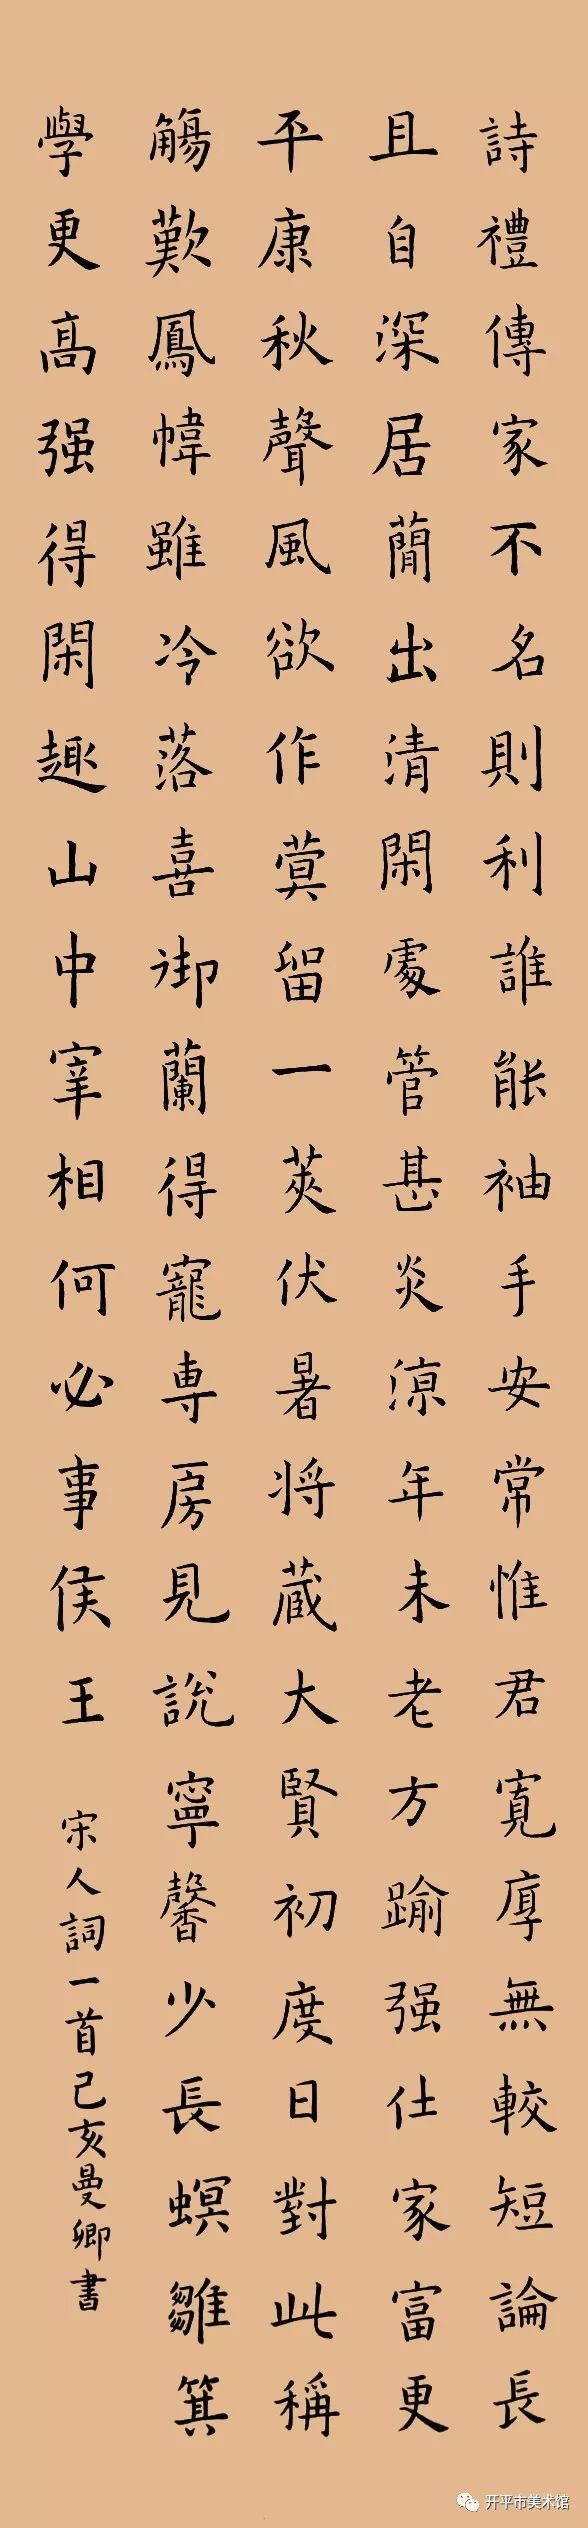 詩禮傳家不名則利誰能袖手安常惟君寬厚無較短論長
且自深居蕳出清閑處管甚炎涼年未老方踰强仕家富更
平康秋聲風欲作蓂留一莢伏暑将蔵大賢初度日對此稱
觴歎鳳幃雖冷落喜御蘭得寵専房見説寧馨少長螟雛箕
學更高强得閑趣山中宰相何必事侯王
宋人詞一首己亥曼卿書
开平市美术馆